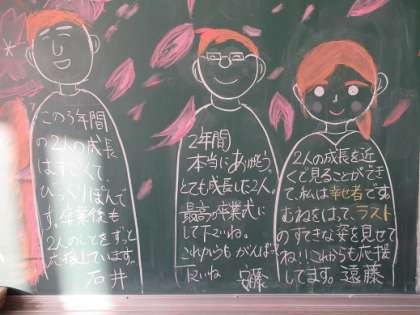 この3年間
の2人の成長
はすごくて、
びっくりぽんで
す。卒業後も
2人のことをずっと
応援しています。
石井
2年間
本当にありがとう。
とても成長した2人。
最高の卒業式に
して下さいね。
これからも がんばって
下さいね 安藤
2人の成長を近
くで見ることができ
て、私は幸せ者です。
むねをはって、ラスト
のすてきな姿を見せて
ね!!これからも応援
してます。遠藤